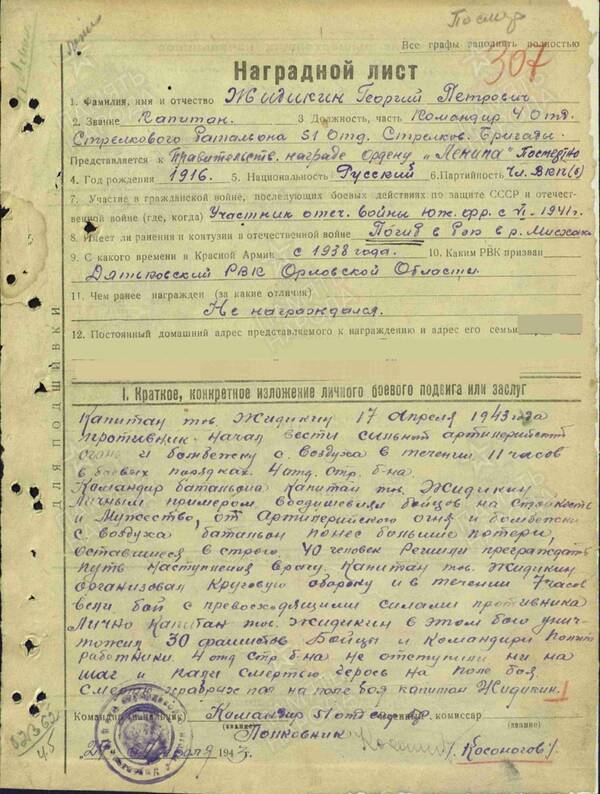 Послер
Все графы заполнять полностью
307
Наградной лист
1. Фамилия, имя и отчество Жидикин Георгий Петрович
2. Звание Капитан. 3 Должность, часть Командир 4 Отд.
Стрелкового Батальона 51 Отд. Стрелков. Бригады.
Представляется к Правительств. награде ордену „Ленина" Посмертно
4. Год рождения 1916. 5. Национальность Русский 6. Партийность Чл. ВКП(б)
7. Участие в гражданской войне, последующих боевых действиях по защите СССР и отечест-
венной войне (где, когда) Участник отеч. войны Юж. фр. с VI-1941г.
8. Имеет ли ранения и контузии в отечественной войне Погиб в р. Мысхако
9. С какого времени в Красной Армии с 1938 года. 10. Каким РВК призван
Дятьковский РВК Орловской Области.
11. Чем ранее награжден (за какие отличия)
Не награждался.
12. Постоянный домашний адрес представляемого к награждению и адрес его семьи
ДЛЯ ПОДШИВКИ
I. Краткое, конкретное изложение личного боевого подвига или заслуг
Капитан тов. Жидикин 17 Апреля 1943 года
противник начал вести сильный артиллерийский
огонь и бомбежку с воздуха в течении 11 часов
в боевых порядках 4 отд. стр. б-на.
Командир батальона Капитан тов. Жидикин
личным примером воодушевлял бойцов на стойкость
и мужество, от Артиллерийского огня и бомбежки
с воздуха батальон понес большие потери,
оставшиеся в строю 40 человек решили преграждать
путь наступления врагу. Капитан тов. Жидикин
организовал круговую оборону и в течении 7 часов
вели бой с превосходящими силами противника
Лично Капитан тов. Жидикин в этом бою унич-
тожил 30 фашистов Бойцы и Командиры Полит
работники 4 отд стр б-на не отступили ни на
шаг и пали смертью героев на поле боя.
Смертью храбрых пал на поле боя капитан Жидикин.
Командир (начальник) Командир 51 отд. Военный комиссар
(звание) (звание)
Полковник /Косоногов/.
1943